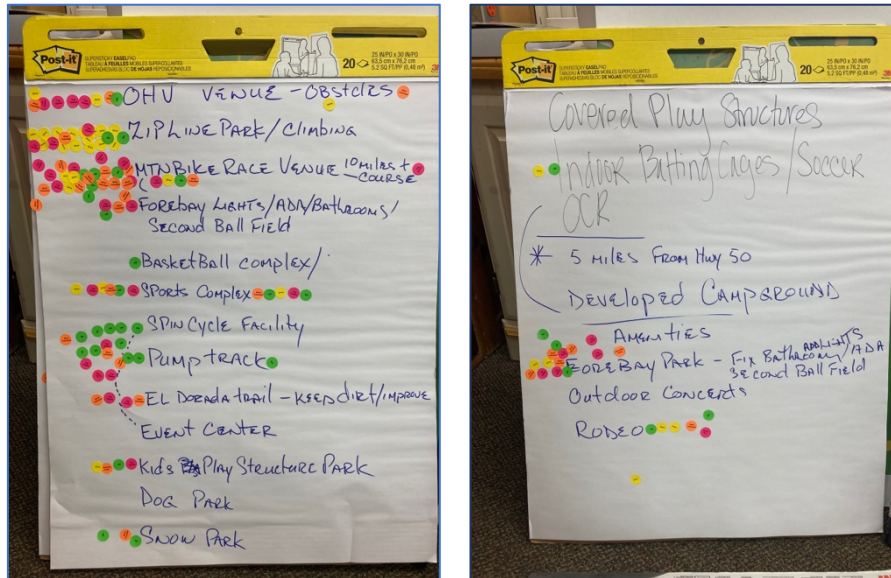 Post-it
SUPERSTICKY EASEL PAD
20
25 IN/PO x 30 IN/PO
63,5 cm x 76,2 cm
5.2 SQ FT/PP (0,48 m²)
OHV VENUE - OBSTCLES
ZIPLINE PARK/CLIMBING
MTN BIKE RACE VENUE 10 MILES +
COURSE
FOREBAY LIGHTS/ADA/BATHROOMS/
SECOND BALL FIELD
BASKETBALL COMPLEX/
SPORTS COMPLEX
SPIN CYCLE FACILITY
PUMPTRACK
EL DORADA TRAIL - KEEP DIRT/IMPROVE
EVENT CENTER
KID'S PLAY STRUCTURE PARK
DOG PARK
SNOW PARK
Post-it
20
25 IN/PO x 30 IN/PO
63,5 cm x 76,2 cm
5.2 SQ FT/PP (0,48 m²)
Covered Play Structures
Indoor Batting Cages/Soccer
OCR
* 5 MILES FROM HWY 50
DEVELOPED CAMPGROUND
AMENITIES
FOREBAY PARK - FIX BATHROOM/ADA
ADD LIGHTS
SECOND BALL FIELD
OUTDOOR CONCERTS
RODEO